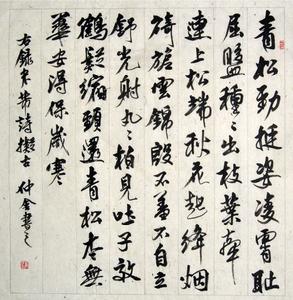 青松勁挺姿凌霄恥
屈盤種々出枝葉牽
連上松端秋花起絳烟
旖旎雲錦殷不羞不自立
舒光射丸々柏見吐子效
鶴疑縮頸還青松本無
華安得保歲寒
右錄米芾詩擬古 仲金書之